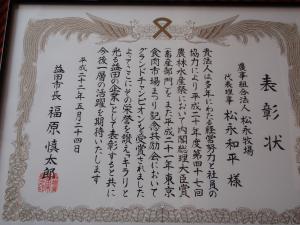 表彰状
農事組合法人 松永牧場
代表理事 松永和平 様
貴法人は多年にわたる経営努力と社員の
協力により平成二十年度第四十七回
農林水産祭において内閣総理大臣賞
(畜産部門)をまた平成二十一年東京
食肉市場まつり記念共励会において
グランドチャンピオンを受賞されました
よってここにその栄誉を讃えキラリと
光る益田の企業として表彰すると共に
今後一層の活躍を期待いたします
平成二十二年五月二十四日
益田市長 福原慎太郎